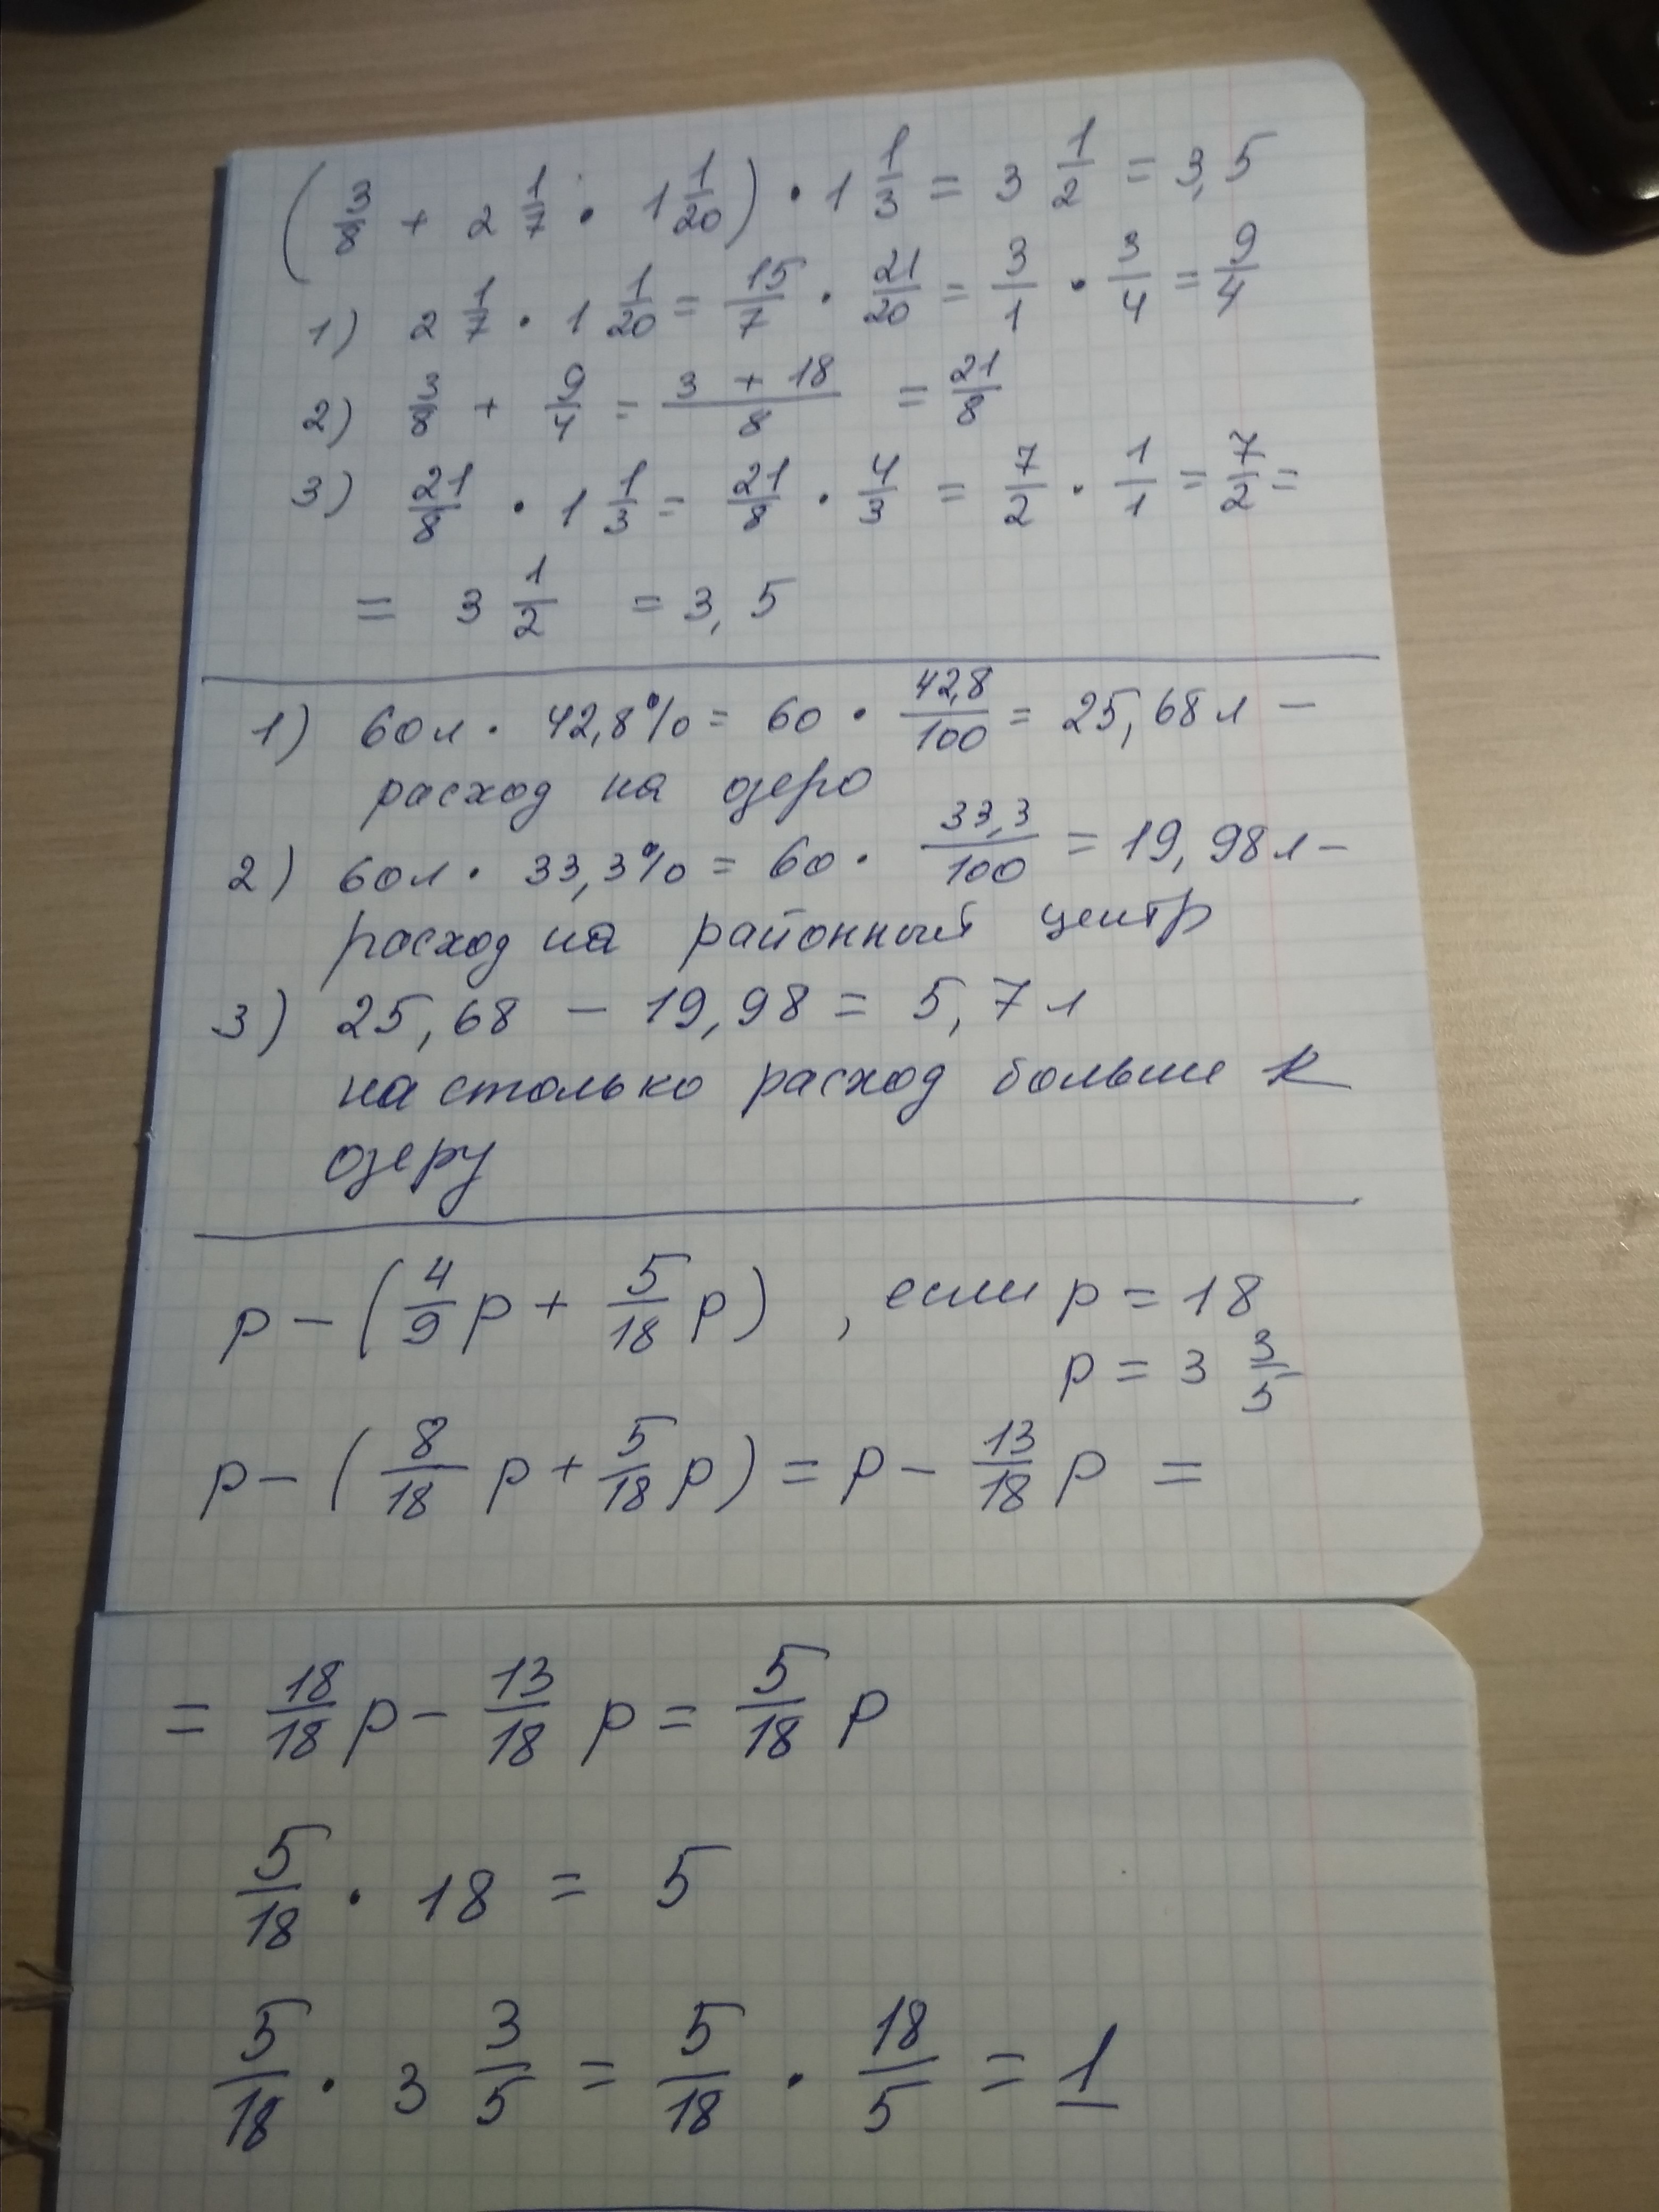 (3/8 + 2 1/7 · 1 1/20) · 1 1/3 = 3 1/2 = 3,5
1) 2 1/7 · 1 1/20 = 15/7 · 21/20 = 3/1 · 3/4 = 9/4
2) 3/8 + 9/4 = (3 + 18)/8 = 21/8
3) 21/8 · 1 1/3 = 21/8 · 4/3 = 7/2 · 1/1 = 7/2 =
= 3 1/2 = 3,5
1) 60л · 42,8% = 60 · 42,8/100 = 25,68л –
расход на озеро
2) 60л · 33,3% = 60 · 33,3/100 = 19,98л –
расход на районный центр
3) 25,68 – 19,98 = 5,7л
на столько расход больше к
озеру
p – (4/9 p + 5/18 p) , если p = 18
p = 3 3/5
p – (8/18 p + 5/18 p) = p – 13/18 p =
= 18/18 p – 13/18 p = 5/18 p
5/18 · 18 = 5
5/18 · 3 3/5 = 5/18 · 18/5 = 1